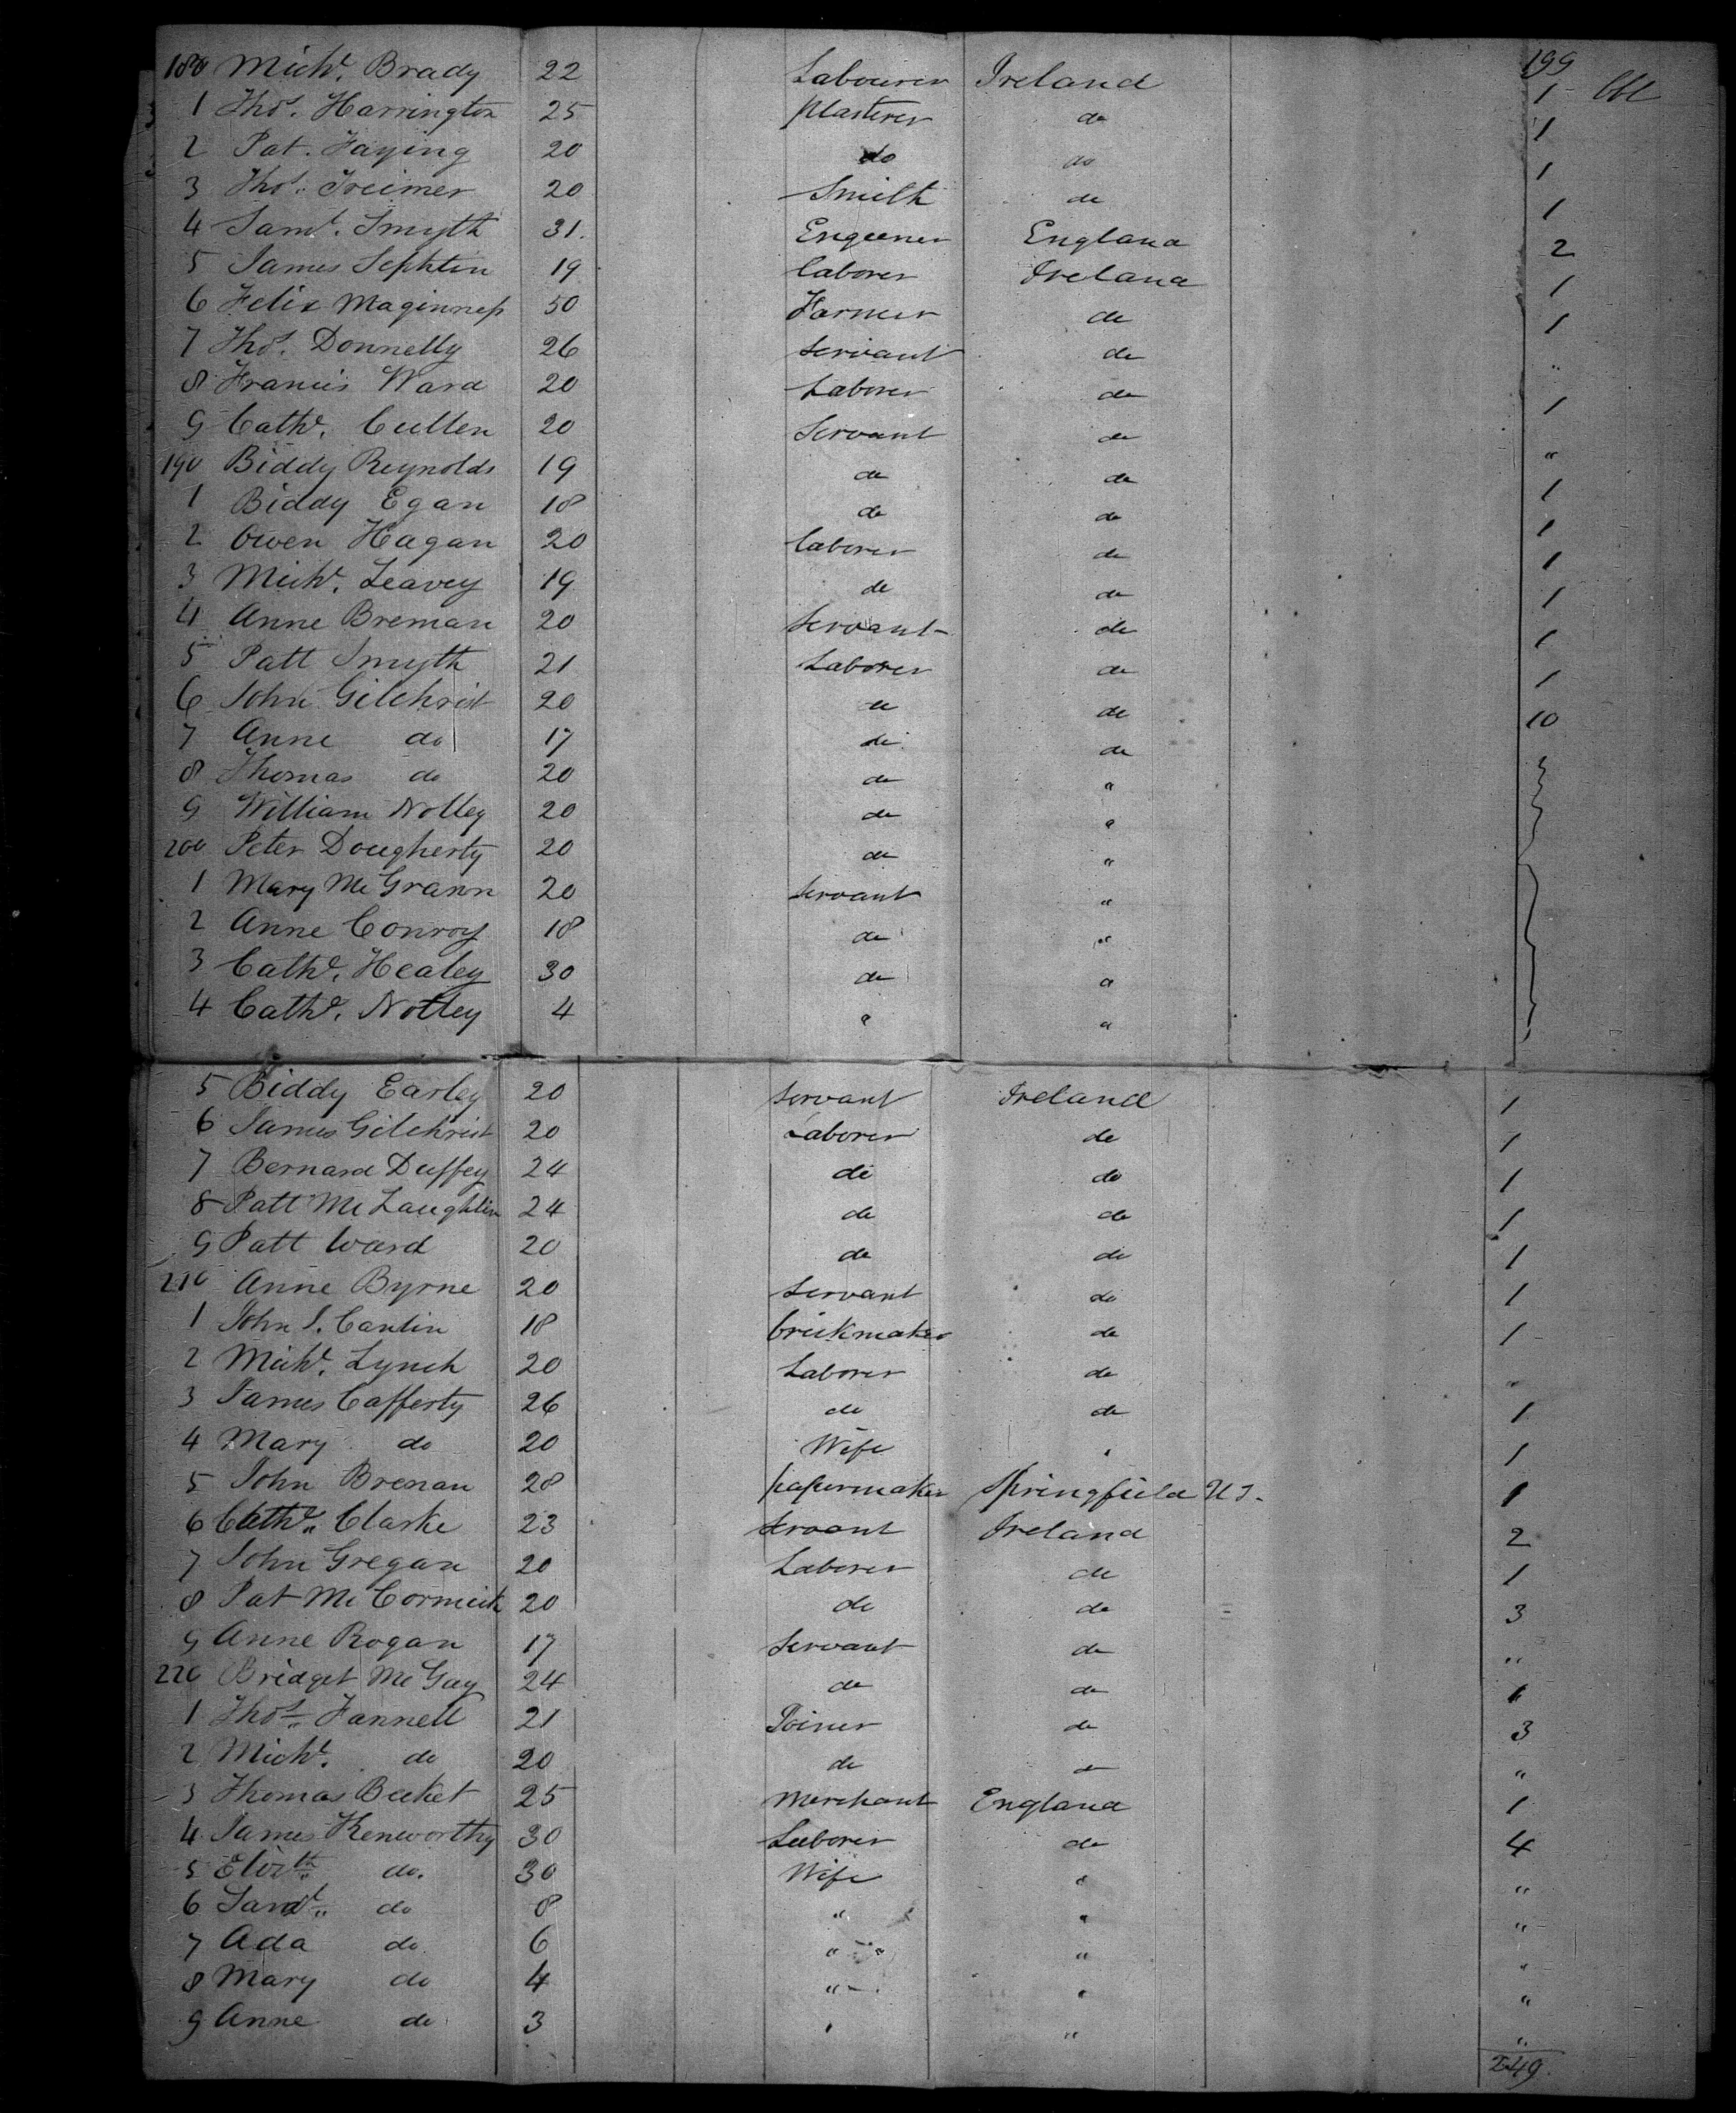 199
180 Michl. Brady 22 Labourer Ireland 1 bbl
1 Thos. Harrington 25 plasterer do 1
2 Pat. Faying 20 do do 1
3 Thos. Treimer 20 Smith do 1
4 Saml. Smyth 31. Engeener England 2
5 James Sephtin 19 laborer Ireland 1
6 Felix Maginness 50 Farmer do 1
7 Thos. Donnelly 26 servant do "
8 Francis Ward 20 Laborer do 1
9 Cathe. Cullen 20 Servant do "
190 Biddy Reynolds 19 do do 1
1 Biddy Egan 18 do do 1
2 Owen Hagan 20 laborer do 1
3 Michl. Leavey 19 do do 1
4 Anne Breman 20 Servant do 1
5 Patt Smyth 21 Laborer do 1
6 John Gilchrist 20 do do 10
7 Anne do 17 do do
8 Thomas do 20 do "
9 William Notley 20 do "
200 Peter Dougherty 20 do "
1 Mary McGrann 20 servant "
2 Anne Conroy 18 do "
3 Cathe. Healey 30 do "
4 Cathe. Notley 4 " "
5 Biddy Earley 20 servant Ireland 1
6 James Gilchrist 20 Laborer do 1
7 Bernard Duffey 24 do do 1
8 Patt McLaughlin 24 do do 1
9 Patt Ward 20 do do 1
210 Anne Byrne 20 Servant do 1
1 John S. Cantin 18 brickmaker do 1
2 Michl. Lynch 20 Laborer do "
3 James Cafferty 26 do do 1
4 Mary do 20 Wife " 1
5 John Brenan 28 papermaker Springfield U S. 1
6 Cathe. Clarke 23 servant Ireland 2
7 John Gregan 20 Laborer do 1
8 Pat McCormick 20 do do 3
9 Anne Rogan 17 Servant do "
220 Bridget McGay 24 do do 1
1 Thos. Fannell 21 Joiner do 3
2 Michl. do 20 do do "
3 Thomas Becket 25 Merchant England 1
4 James Kenworthy 30 Laborer do 4
5 Elizth. do. 30 Wife " "
6 Saml. do 8 " " "
7 Ada do 6 " " " "
8 Mary do 4 " " "
9 Anne do 3 " " "
249.